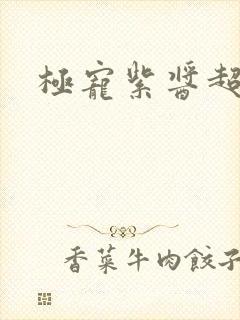 極寵紫醬超
香菜牛肉餃子